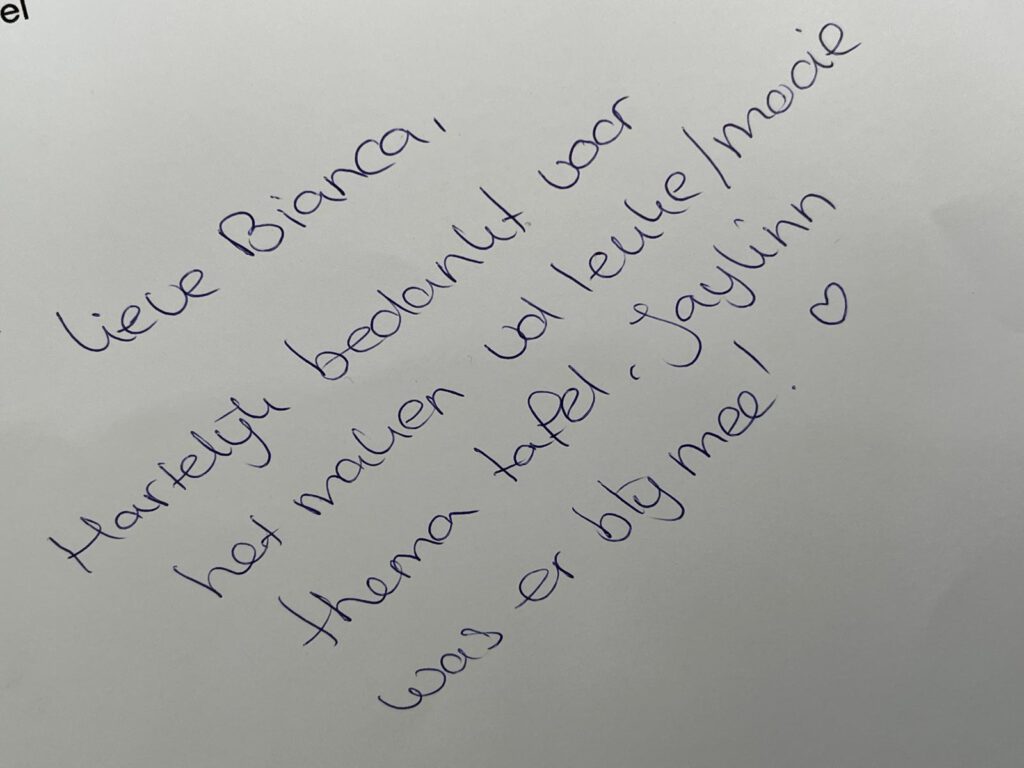 el
Lieve Bianca,
Hartelijk bedankt voor
het maken vd leuke/mooie
thema tafel. Jaylinn
was er blij mee! ♡